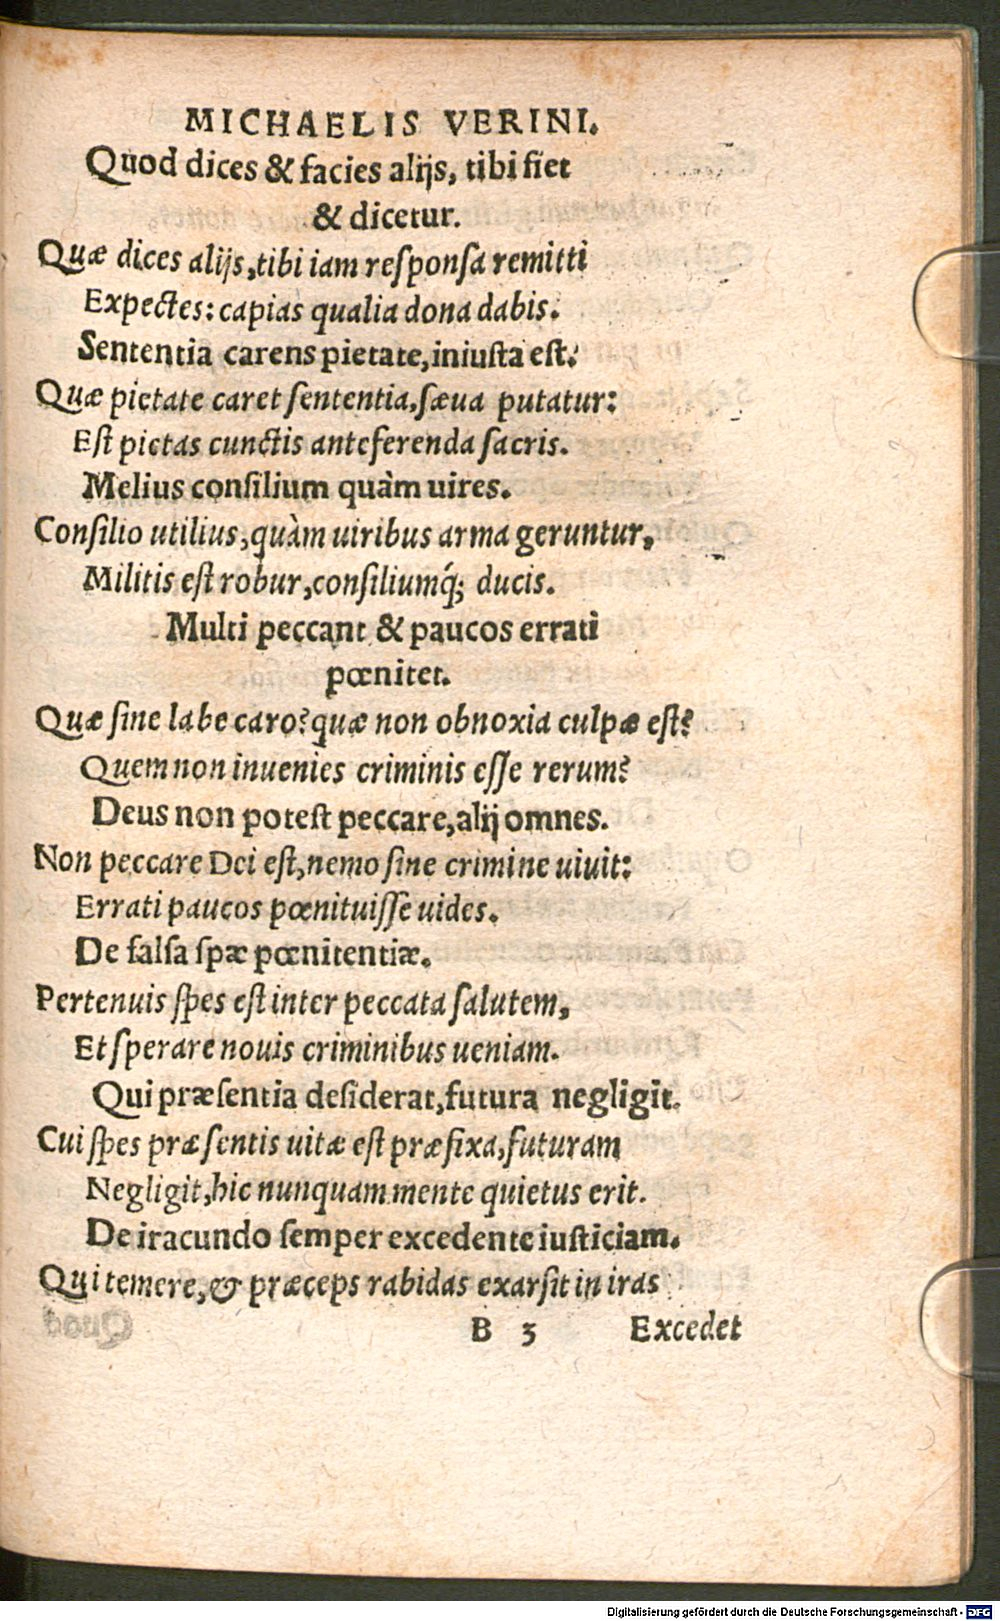 MICHAELIS VERINI.
Quod dices & facies alijs, tibi fiet
& dicetur.
Quæ dices alijs, tibi iam reſponſa remitti
Expectes: capias qualia dona dabis.
Sententia carens pietate, iniusta est.
Quæ pietate caret ſententia, ſæua putatur:
Eſt pietas cunctis anteferenda ſacris.
Melius conſilium quàm uires.
Conſilio utilius, quàm uiribus arma geruntur,
Militis eſt robur, conſiliumq́; ducis.
Multi peccant & paucos errati
pœnitet.
Quæ ſine labe caro? quæ non obnoxia culpæ eſt?
Quem non inuenies criminis eſſe rerum?
Deus non poteſt peccare, alij omnes.
Non peccare Dei eſt, nemo ſine crimine uiuit:
Errati paucos pœnituiſſe uides.
De falſa ſpæ pœnitentiæ.
Pertenuis ſpes eſt inter peccata ſalutem,
Et ſperare nouis criminibus ueniam.
Qui præſentia deſiderat, futura negligit.
Cui ſpes præſentis uitæ eſt præfixa, futuram
Negligit, hic nunquam mente quietus erit.
De iracundo ſemper excedente iusticiam.
Qui temere, & præceps rabidas exarſit in iras
B 3 Excedet
Digitalisierung gefördert durch die Deutsche Forschungsgemeinschaft - DFG